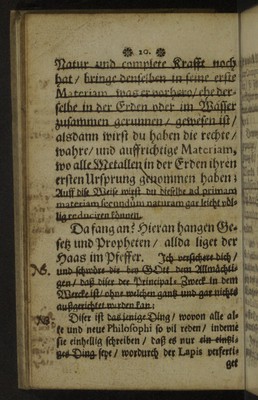 ❀ 10. ❀
Natur und complete Krafft noch
hat / bringe denselben in seine erste
Materiam, was er vorhero / ehe der-
selbe in der Erden oder im Wasser
zusammen gerunnen / gewesen ist /
alsdann wirst du haben die rechte /
wahre / und auffrichtige Materiam,
wo alle Metallen in der Erden ihren
ersten Ursprung genommen haben;
Auff dise Weise wirst du dieselbe ad primam
materiam secundum naturam gar leicht völ-
lig reduciren können.
Da fang an? Hieran hangen Ge-
setz und Propheten / allda liget der
Haas im Pfeffer. Ich versichere dich /
NB. und schwöre dir bey GOtt dem Allmächti-
gen / daß diser der Principal-Zweck in dem
Wercke ist / ohne welchen gantz und gar nichts
außgerichtet werden kan:
NB. Diser ist das jenige Ding / wovon alle al-
te und neue Philosophi so vil reden / indeme
sie einhellig schreiben / daß es nur ein eintzi-
ges Ding seye / wordurch der Lapis verferti-
get